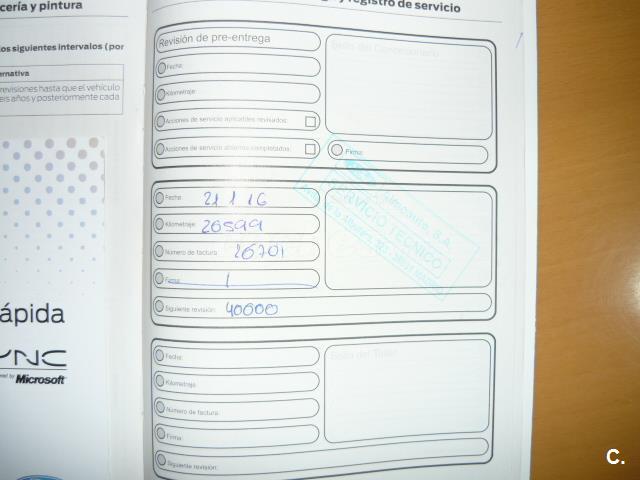 cería y pintura
registro de servicio
los siguientes intervalos (por
ernativa
revisiones hasta que el vehículo
eis años y posteriormente cada
Revisión de pre-entrega
Sello del Concesionario
Fecha:
Kilometraje:
Acciones de servicio aplicables revisados:
Acciones de servicio abiertos completados:
Firma:
S.A.
SERVICIO TÉCNICO
Fecha: 21 1 16
Kilometraje: 26599
Número de factura: 26701
Firma:
Siguiente revisión: 40000
ápida
YNC
Microsoft
Fecha:
Sello del Taller
Kilometraje:
Número de factura:
Firma:
Siguiente revisión:
C.